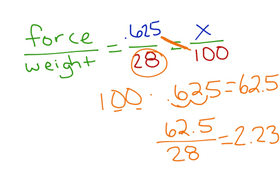 force/weight = .625/28 = x/100
100 · .625 = 62.5
62.5/28 = 2.23